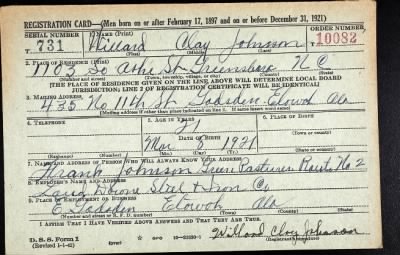 REGISTRATION CARD—(Men born on or after February 17, 1897 and on or before December 31, 1921)
SERIAL NUMBER 1. NAME (Print) ORDER NUMBER
T. 731 Willard Clay Johnson T. 10082
(First) (Middle) (Last)
2. PLACE OF RESIDENCE (Print)
1703 So Ashe St Greensboro N C
(Number and street) (Town, township, village, or city) (County) (State)
[THE PLACE OF RESIDENCE GIVEN ON THE LINE ABOVE WILL DETERMINE LOCAL BOARD
JURISDICTION; LINE 2 OF REGISTRATION CERTIFICATE WILL BE IDENTICAL]
3. MAILING ADDRESS
435 No 11th St Gadsden Etowah Ala
(Mailing address if other than place indicated on line 2. If same insert word same)
4. TELEPHONE 5. AGE IN YEARS 6. PLACE OF BIRTH
21
DATE OF BIRTH (Town or county)
Mar 8 1921
(Exchange) (Number) (Mo.) (Day) (Yr.) (State or country)
7. NAME AND ADDRESS OF PERSON WHO WILL ALWAYS KNOW YOUR ADDRESS
Frank Johnson Green Pastures Route No. 2
8. EMPLOYER'S NAME AND ADDRESS
Steel & Iron Co
9. PLACE OF EMPLOYMENT OR BUSINESS
E Gadsden Etowah Ala
(Number and street or R. F. D. number) (Town) (County) (State)
I AFFIRM THAT I HAVE VERIFIED ABOVE ANSWERS AND THAT THEY ARE TRUE.
D. S. S. Form 1 Willard Clay Johnson
(Revised 1-1-42) (over) (Registrant's signature)